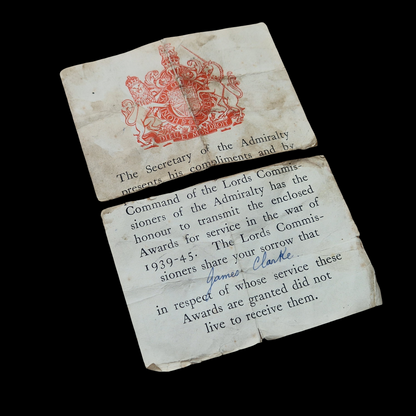 The Secretary of the Admiralty
presents his compliments and by
Command of the Lords Commis-
sioners of the Admiralty has the
honour to transmit the enclosed
Awards for service in the war of
1939-45. The Lords Commis-
sioners share your sorrow that
James Clarke
in respect of whose service these
Awards are granted did not
live to receive them.